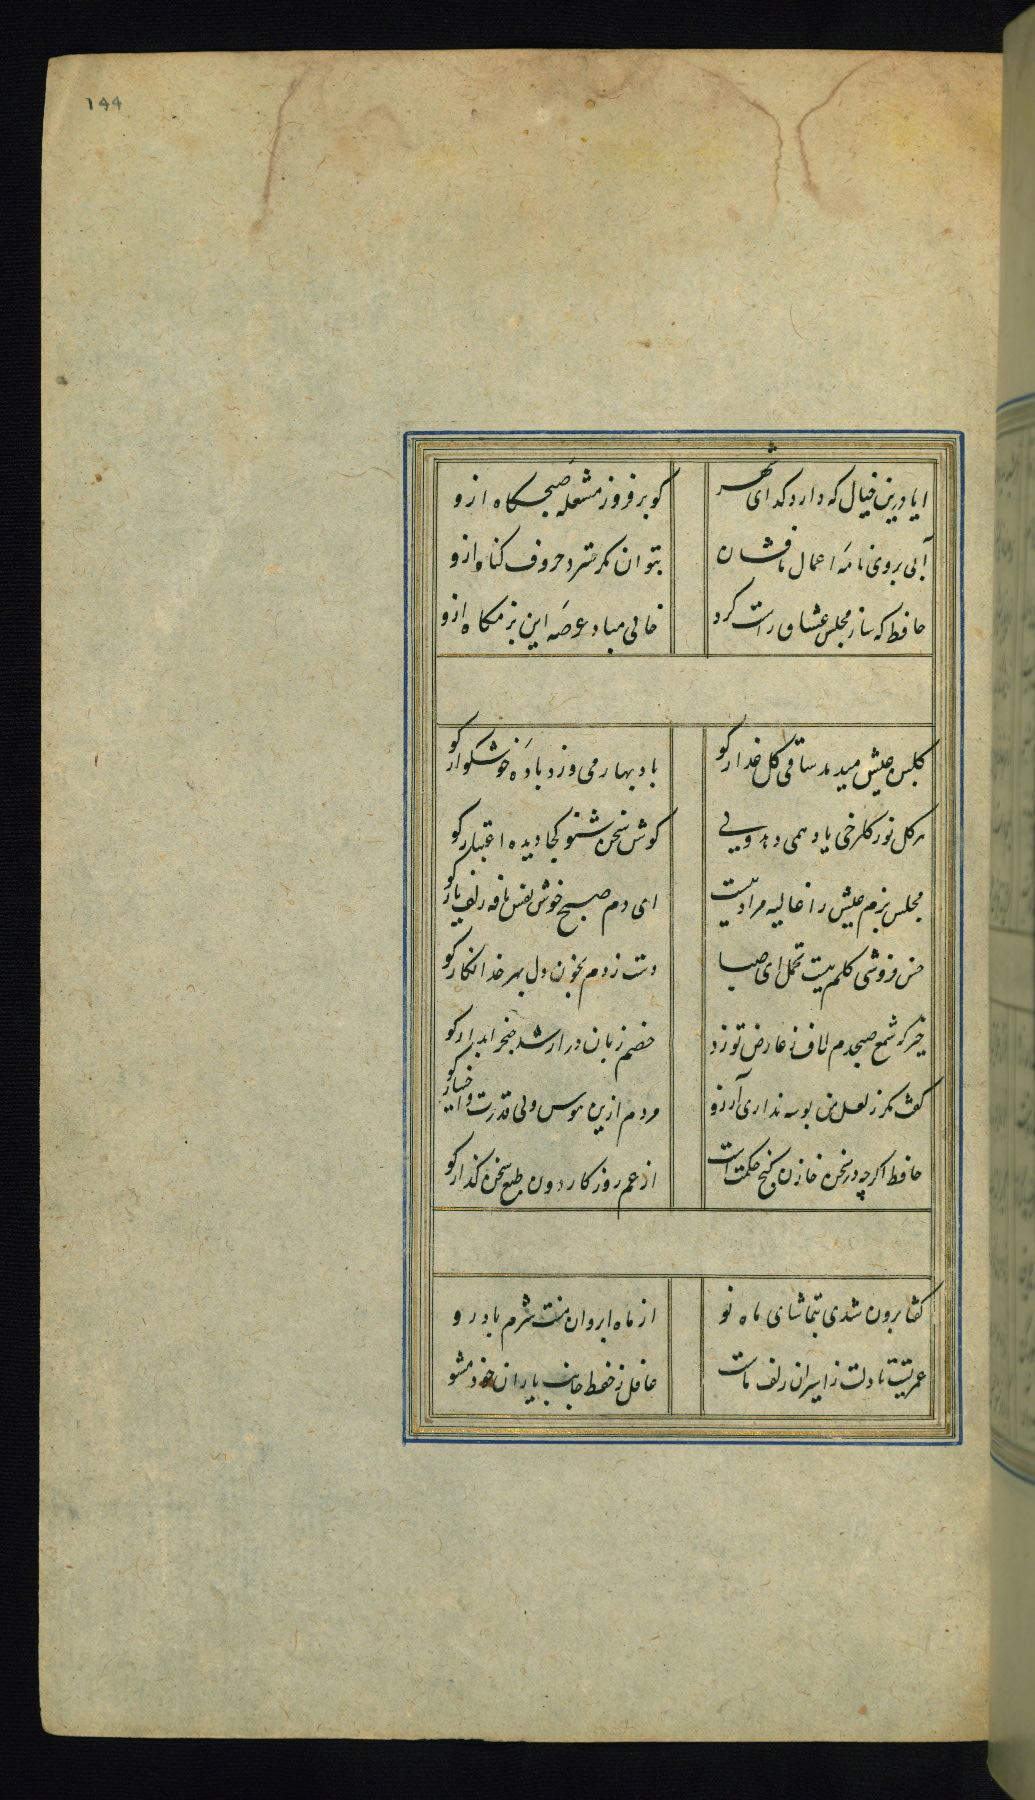 ۱۴۴
ایا درین خیال که دارد کدای شهر کو بر فروز مشعله صبحکاه ازو
آبی بروی نامه اعمال ما فشان بتوان مکر سترد حروف کناه ازو
حافظ که ساز مجلس عشاق راست کرد خالی مباد عرصه این بزمکاه ازو
کلبن عیش میدمد ساقی کل عذار کو باد بهار می وزد باده خوشکوار کو
هر کل نو ز کلرخی یاد همی دهد ولی کوش سخن شنو کجا دیده اعتبار کو
مجلس بزم عیش را غالیه مراد نیست ای دم صبح خوش نفس نافه زلف یار کو
حسن فروشی کلم نیست تحمل ای صبا دست زدم بخون دل بهر خدا نکار کو
شمع صبحدم لاف ز عارض تو زد خصم زبان دراز شد خنجر ابدار کو
کفت مکر ز لعل من بوسه نداری آرزو مردم ازین هوس ولی قدرت و اختیار کو
حافظ اکرچه در سخن خازن کنج حکمت است از غم روزکار دون طبع سخن کذار کو
کفتا برون شدی بتماشای ماه نو از ماه ابروان منت شرم باد رو
عمریست تا دلت ز اسیران زلف ماست غافل ز حفظ جانب یاران خود مشو